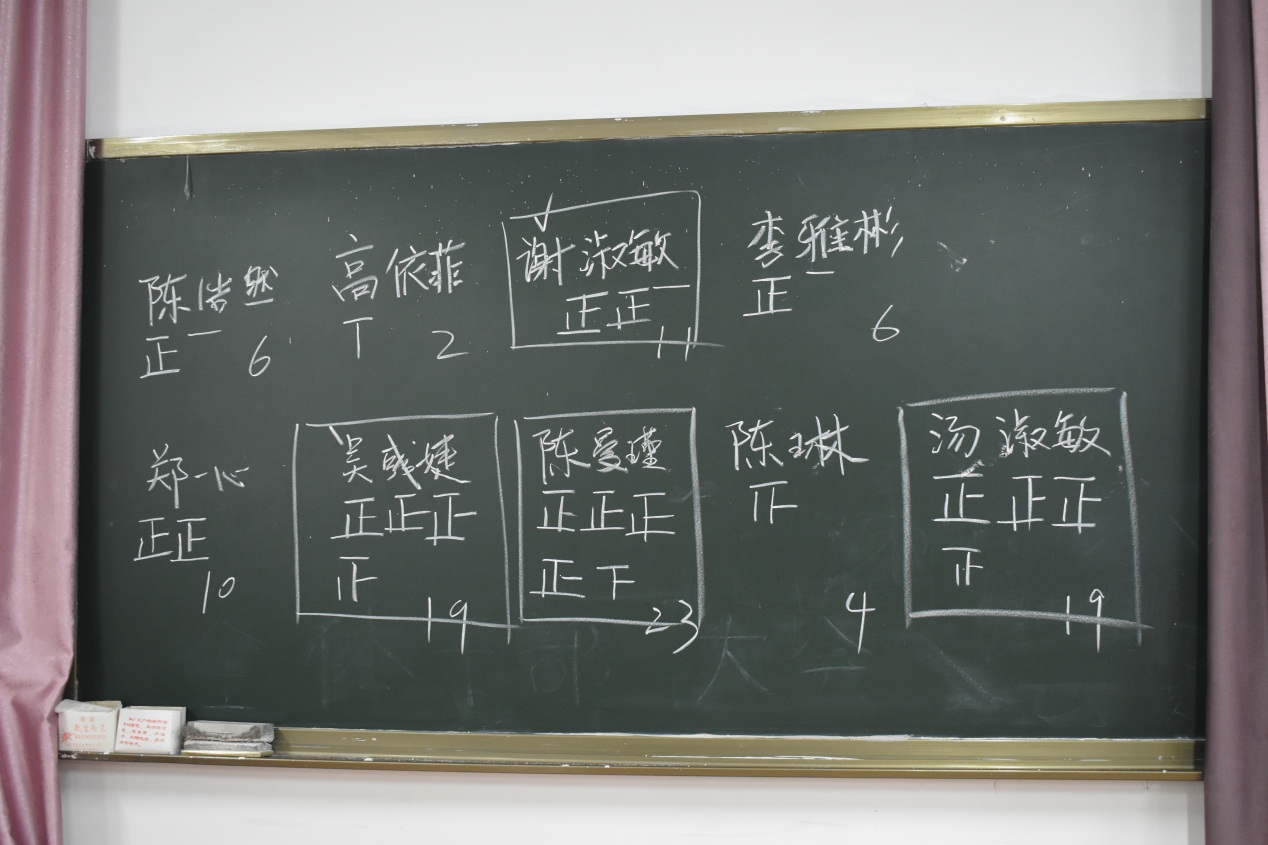 陈浩然
正一 6
高依菲
丅 2
谢淑敏
正正一
11
李雅彬
正一
6
郑一心
正正
10
吴彧婕
正正正
正
19
陈爱瑾
正正正
正下
23
陈琳
正
4
汤淑敏
正正正
正
19